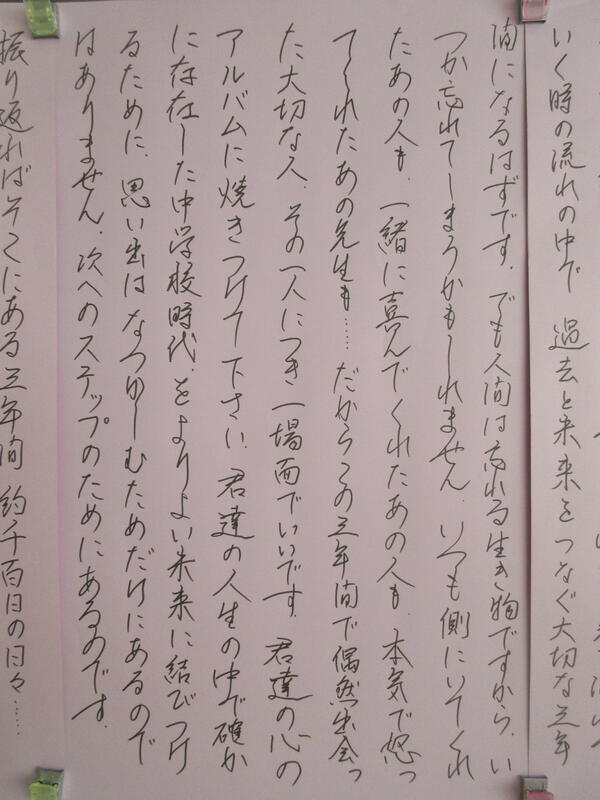 いく時の流れの中で 過去と未来をつなぐ大切な三年
間になるはずです。でも人間は忘れる生き物ですから、い
つか忘れてしまうかもしれません。いつも側にいてくれ
たあの人も、一緒に喜んでくれたあの人も、本気で怒っ
てくれたあの先生も……だからこの三年間で偶然出会っ
た大切な人、その一人につき一場面でいいです。君達の心の
アルバムに焼きつけて下さい。君達の人生の中で確か
に存在した中学校時代、をよりよい未来に結びつけ
るために、思い出はなつかしむためだけにあるので
はありません。次へのステップのためにあるのです。
振り返ればそこにある三年間 約千百日の日々……